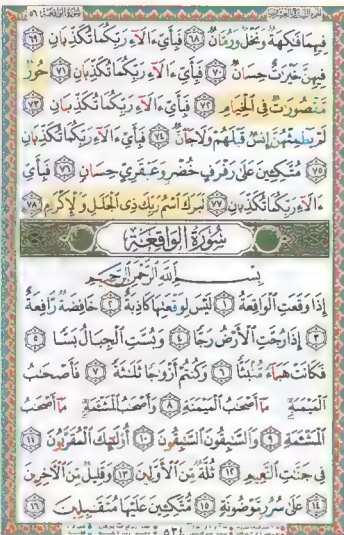 فِيهِمَا فَٰكِهَةٌ وَنَخْلٌ وَرُمَّانٌ ٦٨ فَبِأَيِّ ءَالَآءِ رَبِّكُمَا تُكَذِّبَانِ ٦٩
فِيهِنَّ خَيْرَٰتٌ حِسَانٌ ٧٠ فَبِأَيِّ ءَالَآءِ رَبِّكُمَا تُكَذِّبَانِ ٧١ حُورٌ
مَّقْصُورَٰتٌ فِي ٱلْخِيَامِ ٧٢ فَبِأَيِّ ءَالَآءِ رَبِّكُمَا تُكَذِّبَانِ ٧٣
لَمْ يَطْمِثْهُنَّ إِنسٌ قَبْلَهُمْ وَلَا جَآنٌّ ٧٤ فَبِأَيِّ ءَالَآءِ رَبِّكُمَا تُكَذِّبَانِ
٧٥ مُتَّكِـِٔينَ عَلَىٰ رَفْرَفٍ خُضْرٍ وَعَبْقَرِيٍّ حِسَانٍ ٧٦ فَبِأَيِّ
ءَالَآءِ رَبِّكُمَا تُكَذِّبَانِ ٧٧ تَبَٰرَكَ ٱسْمُ رَبِّكَ ذِي ٱلْجَلَٰلِ وَٱلْإِكْرَامِ ٧٨
سُورَةُ الْوَاقِعَةِ
بِسْمِ ٱللَّهِ ٱلرَّحْمَٰنِ ٱلرَّحِيمِ
إِذَا وَقَعَتِ ٱلْوَاقِعَةُ ١ لَيْسَ لِوَقْعَتِهَا كَاذِبَةٌ ٢ خَافِضَةٌ رَّافِعَةٌ
٣ إِذَا رُجَّتِ ٱلْأَرْضُ رَجًّا ٤ وَبُسَّتِ ٱلْجِبَالُ بَسًّا ٥
فَكَانَتْ هَبَآءً مُّنۢبَثًّا ٦ وَكُنتُمْ أَزْوَٰجًا ثَلَٰثَةً ٧ فَأَصْحَٰبُ
ٱلْمَيْمَنَةِ مَآ أَصْحَٰبُ ٱلْمَيْمَنَةِ ٨ وَأَصْحَٰبُ ٱلْمَشْـَٔمَةِ مَآ أَصْحَٰبُ
ٱلْمَشْـَٔمَةِ ٩ وَٱلسَّٰبِقُونَ ٱلسَّٰبِقُونَ ١٠ أُو۟لَٰٓئِكَ ٱلْمُقَرَّبُونَ ١١
فِي جَنَّٰتِ ٱلنَّعِيمِ ١٢ ثُلَّةٌ مِّنَ ٱلْأَوَّلِينَ ١٣ وَقَلِيلٌ مِّنَ ٱلْءَاخِرِينَ
١٤ عَلَىٰ سُرُرٍ مَّوْضُونَةٍ ١٥ مُّتَّكِـِٔينَ عَلَيْهَا مُتَقَٰبِلِينَ ١٦
٥٣٤